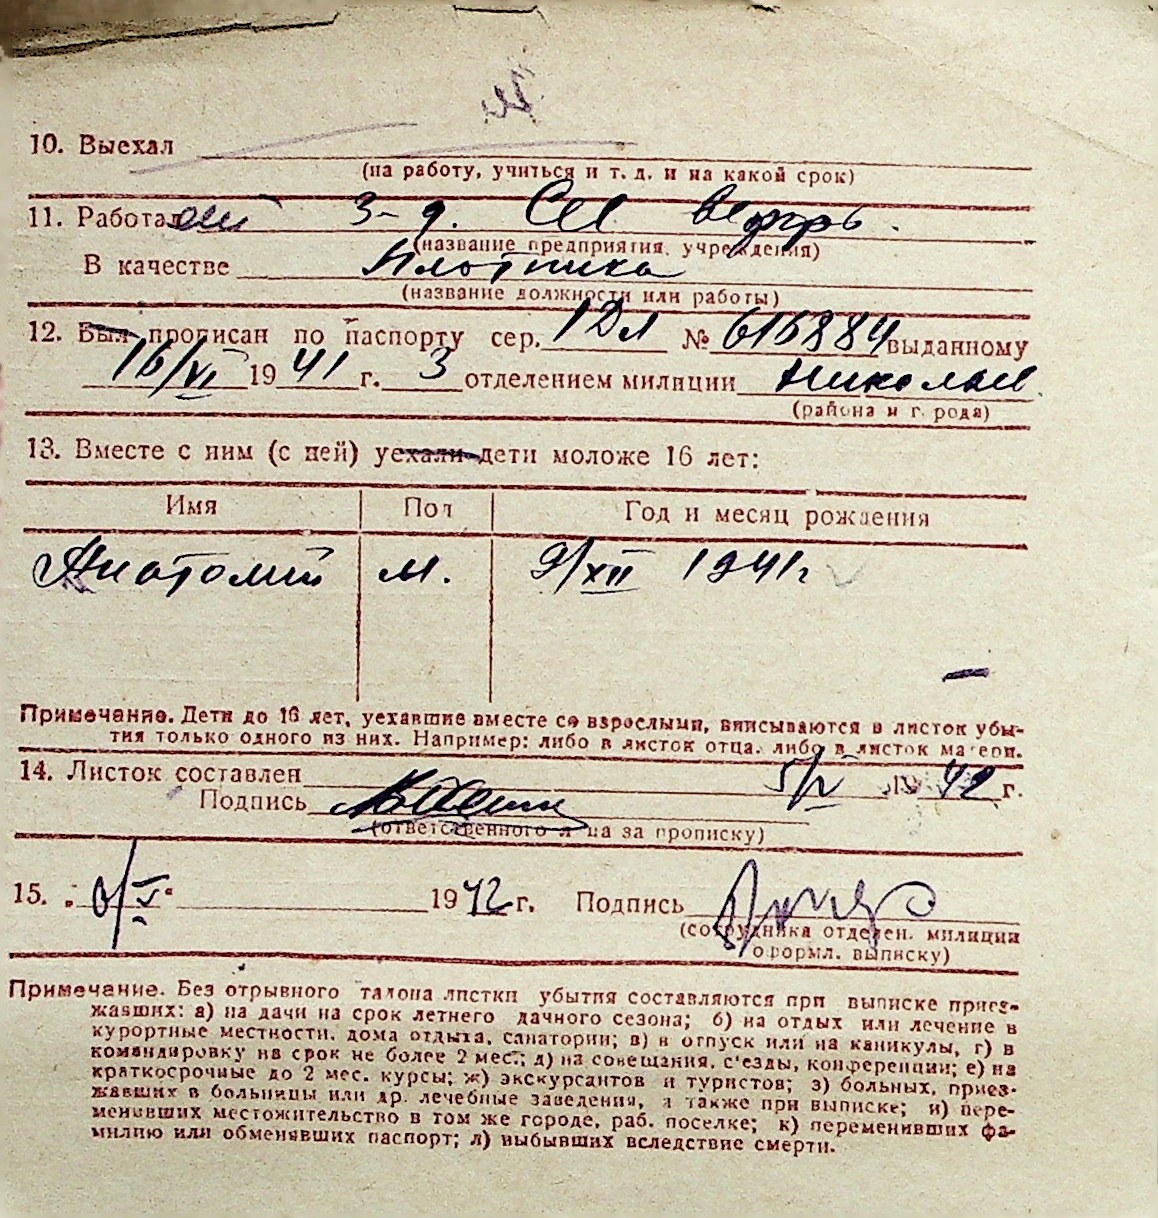 10. Выехал
(на работу, учиться и т. д. и на какой срок)
11. Работал 3-д. Сев верфь.
(название предприятия, учреждения)
В качестве Плотника
(название должности или работы)
12. Был прописан по паспорту сер. IДл № 616884 выданному
16/VI 1941 г. 3 отделением милиции Николаев.
(района и г. рода)
13. Вместе с ним (с ней) уехали дети моложе 16 лет:
Имя Пол Год и месяц рождения
Анатолий м. 9/XII 1941г
Примечание. Дети до 16 лет, уехавшие вместе со взрослыми, вписываются в листок убы-
тия только одного из них. Например: либо в листок отца, либо в листок матери.
14. Листок составлен 5/V 1942 г.
Подпись
(ответственного л на за прописку)
15. „6/V“ 1942 г. Подпись
(сотрудника отделен. милиции
оформл. выписку)
Примечание. Без отрывного талона листки убытия составляются при выписке приез-
жавших: а) на дачи на срок летнего дачного сезона; б) на отдых или лечение в
курортные местности, дома отдыха, санатории; в) в отпуск или на каникулы, г) в
командировку на срок не более 2 мес.; д) на совещания, с'езды, конференции; е) на
краткосрочные до 2 мес. курсы; ж) экскурсантов и туристов; з) больных, приез-
жавших в больницы или др. лечебные заведения, а также при выписке; и) пере-
менивших местожительство в том же городе, раб. поселке; к) переменивших фа-
милию или обменявших паспорт; л) выбывших вследствие смерти.